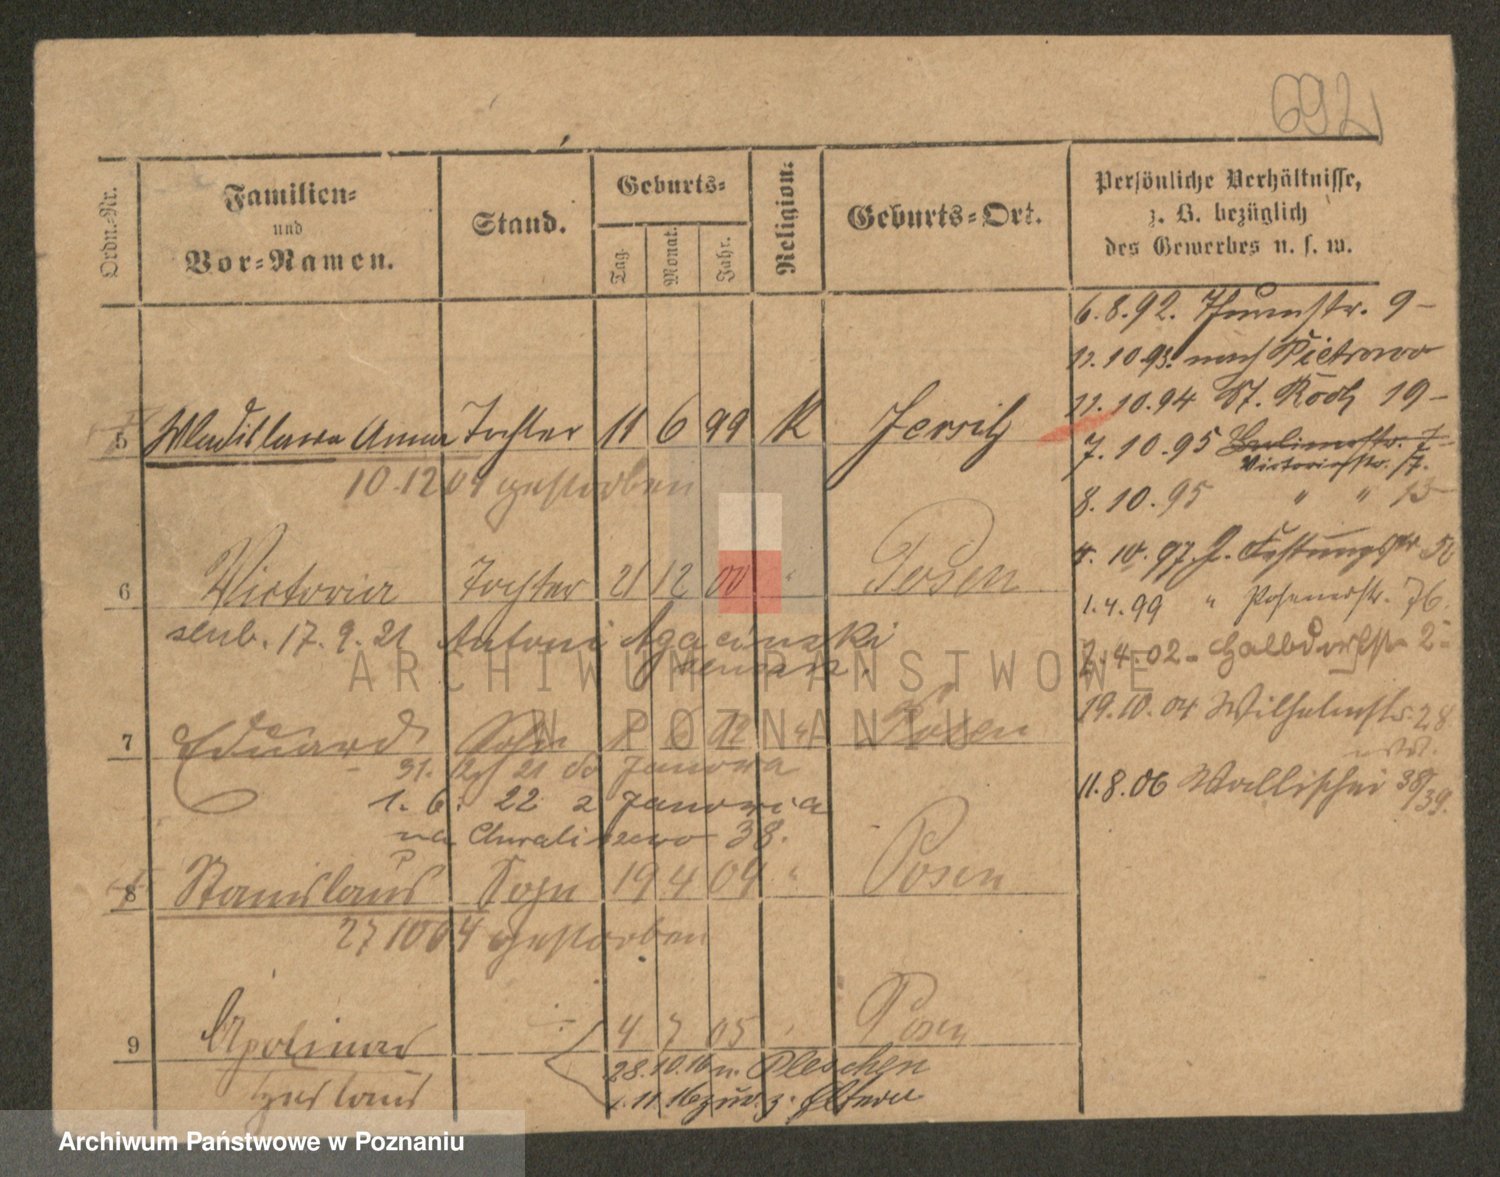 692
Ordn.-Nr.
Familien-
und
Vor-Namen.
Stand.
Geburts-
Tag.
Monat.
Jahr.
Religion.
Geburts-Ort.
Persönliche Verhältnisse,
z. B. bezüglich
des Gewerbes u. s. w.
6.8.92. Thurmstr. 9-
11.10.93. nach Pietrowo
11.10.94 St. Roch 19-
7.10.95 7-
Victoriastr. 17.
8.10.95 " " 13
4.10.97. Festungsstr
1.4.99 " Posenerstr. 76.
2.4.02- Halbdorfstr 2-
19.10.04 Wilhelmstr. 28
11.8.06 Wallischei 38/39.
5 Wladislawa Anna Tochter 11 6 99 K Jersitz
10.12 04 gestorben
6 Victoria Tochter 21 12 00 " Posen
slub. 17.9.21 Antoni Agaciński
7 Eduard Sohn 02 " Posen
31. 12 21 do Janowa
1. 6. 22 z Janowca
na Chwaliszewo 38.
8 Stanislaus Sohn 19 4 04 " Posen
27 10 04 gestorben
9 Apolinar 4 7 05 " Posen
28.10.16 n. Pleschen
1.11.16 zur. z. Eltern
ARCHIWUM PAŃSTWOWE
W POZNANIU
Archiwum Państwowe w Poznaniu